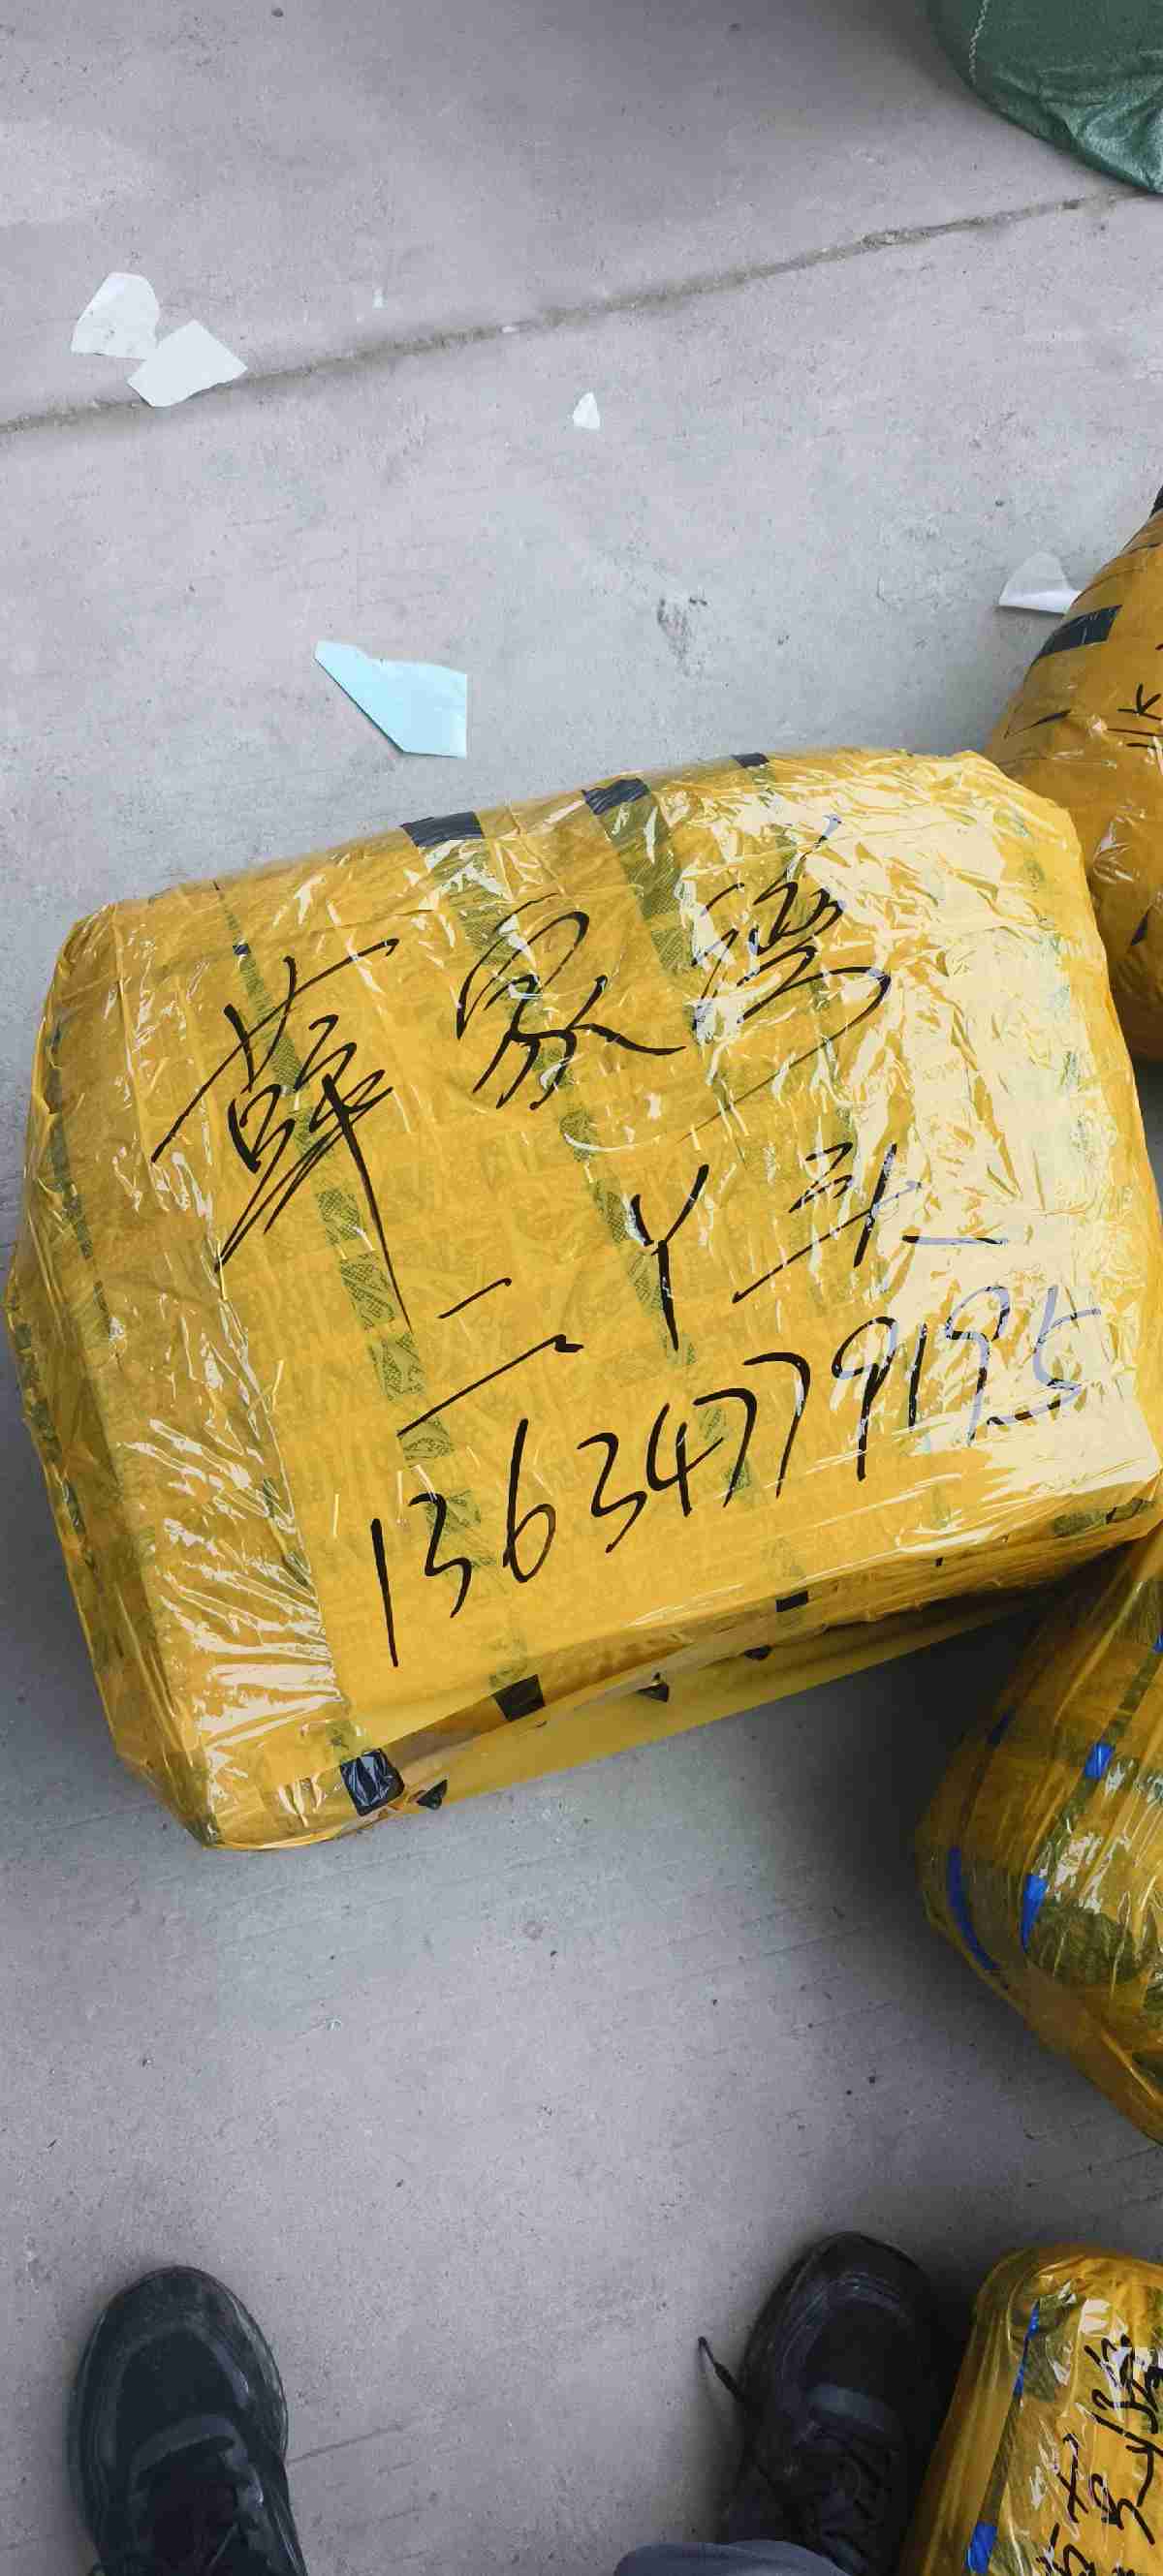 薛家湾
二丫头
13634779195